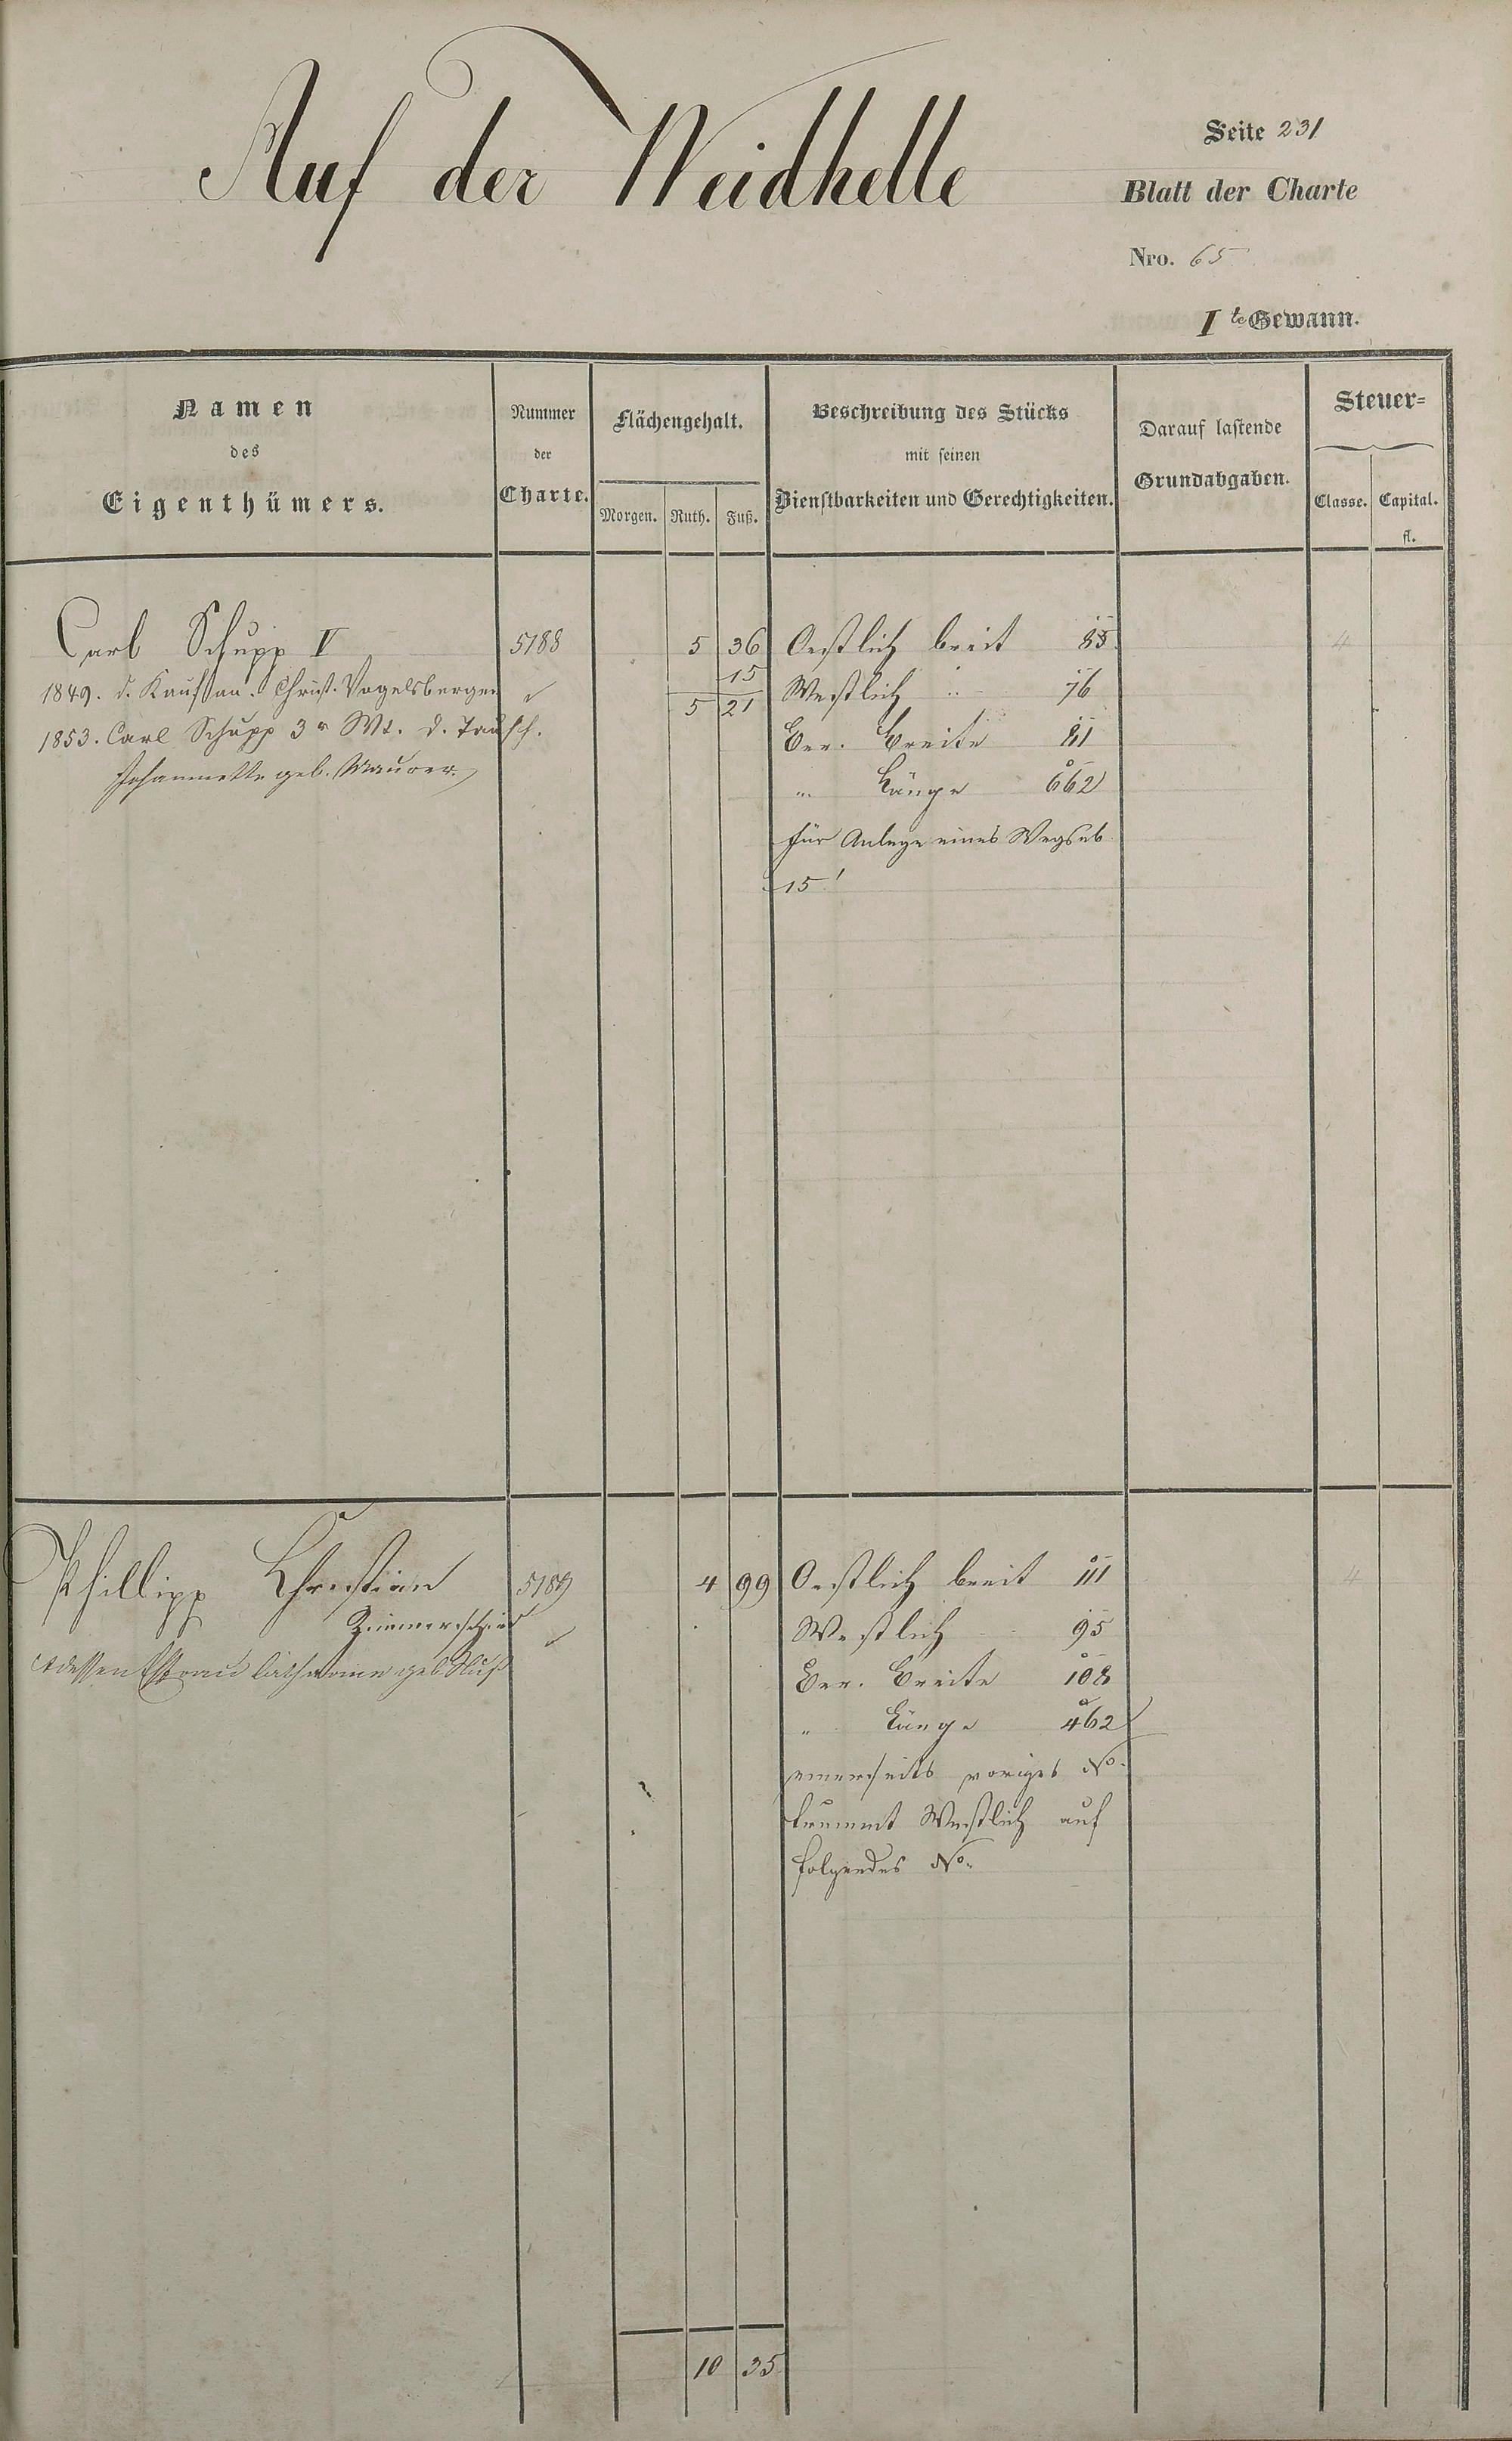 Auf der Weidhelle
Seite 231
Blatt der Charte
Nro. 65
I te Gewann.
Namen
des
Eigenthümers.
Nummer
der
Charte.
Flächengehalt.
Morgen. Ruth. Fuß.
Beschreibung des Stücks
mit seinen
Dienstbarkeiten und Gerechtigkeiten.
Darauf lastende
Grundabgaben.
Steuer=
Classe. Capital.
fl.
Carl Schupp V 5188 5 36 Oestlich breit 85 4
15
1849. d. Kauf an Christ. Vogelsberger 5 21 Westlich " 76
1853. Carl Schupp 3r Wt. d. Tausch. Ver. Breite 81
Johannette geb. Maurer " Länge 662
für Anlage eines Wegs ab
15'
Phillipp Christian 5189 4 99 Oestlich breit 111 4
Zimmerschied Westlich 95
dessen Ehefrau geb. Ver. Breite 108
" Länge 462
einerseits voriges No.
kommt Westlich auf
folgendes No.
10 35